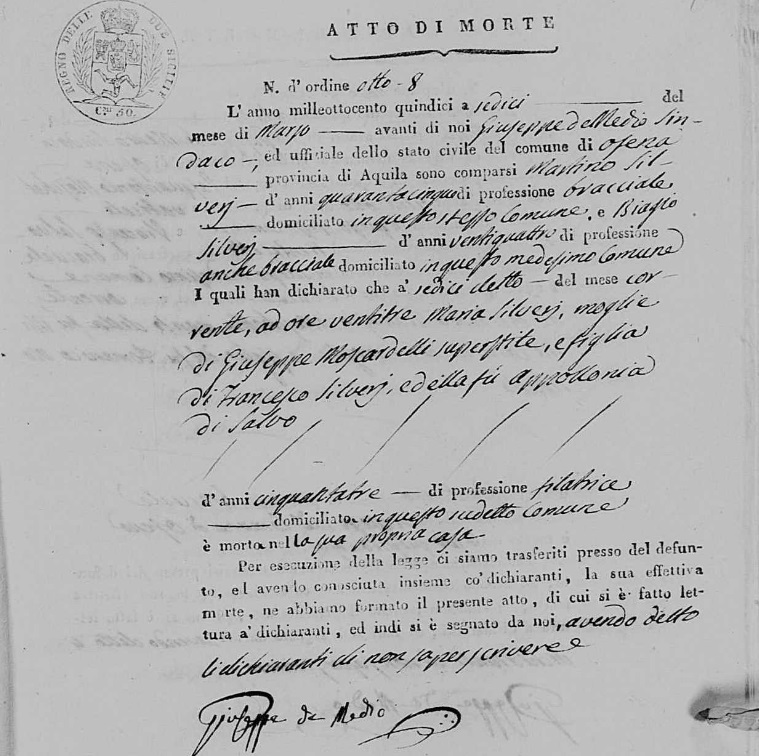 REGNO DELLE DUE SICILIE
ATTO DI MORTE
N. d'ordine otto - 8
L'anno milleottocento quindici a sedici del
mese di Marzo avanti di noi Giuseppe de Medio Sin-
daco, ed uffiziale dello stato civile del comune di Ofena
provincia di Aquila sono comparsi Martino Sil-
verj d'anni quarantacinque di professione bracciale
domiciliato in questo stesso Comune, e Biagio
Silverj d'anni ventiquattro di professione
anche bracciale domiciliato in questo medesimo Comune
I quali han dichiarato che a' sedici detto del mese cor-
rente, ad ore ventitre Maria Silverj, moglie
di Giuseppe Moscardelli superstite, e figlia
di Francesco Silverj, e della fù Appollonia
di Salvo
d'anni cinquantatre di professione filatrice
domiciliata in questo sudetto Comune
è morta nella sua propria casa
Per esecuzione della legge ci siamo trasferiti presso del defun-
to, ed avendo conosciuta insieme co' dichiaranti, la sua effettiva
morte, ne abbiamo formato il presente atto, di cui si è fatto let-
tura a' dichiaranti, ed indi si è segnato da noi, avendo detto
li dichiaranti di non saper scrivere
Giuseppe de Medio